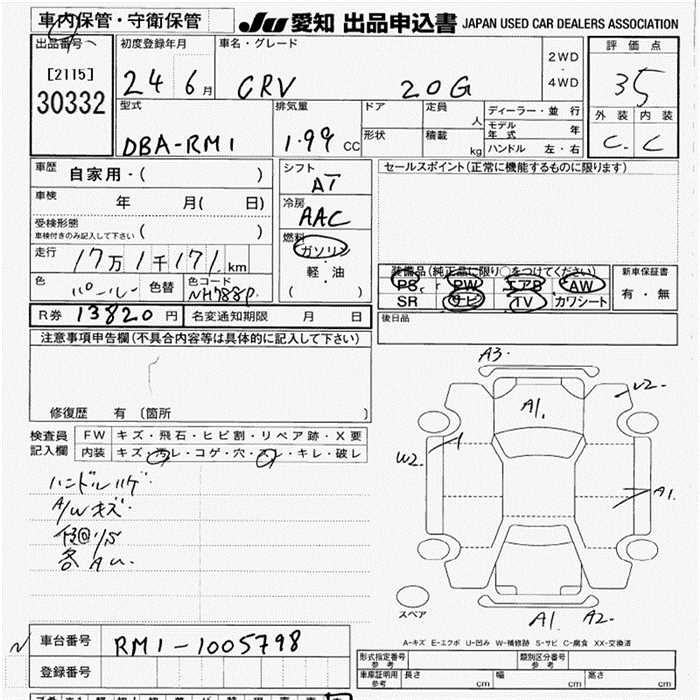 車内保管・守衛保管
JU 愛知 出品申込書 JAPAN USED CAR DEALERS ASSOCIATION
出品番号
[2115]
30332
初度登録年月
24 6月
車名・グレード
CRV 20G
2WD
・
4WD
評価点
35
外装 内装
C C
型式
DBA-RM1
排気量
1.99 CC
ドア
定員 人
形状
積載 kg
ディーラー・並行
モデル年式 年
ハンドル 左・右
車歴
自家用・( )
車検
年 月( 日)
受検形態
車検付きのみ記入して下さい ( )
走行
17万1千171 km
色
パール
色替
色コード
NH788P
シフト
AT
冷房
AAC
燃料
ガソリン
軽・油
( )
セールスポイント(正常に機能するものに限ります)
装備品(純正品に限り○をつけてください)
PS PW エアB AW
SR ナビ TV カワシート
新車保証書
有・無
後日品
R券 13820円
名変通知期限 月 日
注意事項申告欄(不具合内容等は具体的に記入して下さい)
修復歴 有 〔箇所 〕
検査員
記入欄
FW キズ・飛石・ヒビ割・リペア跡・X要
内装 キズ・汚レ・コゲ・穴・スレ・キレ・破レ
ハンドルハゲ
A/Wキズ
各AU
A3
A1
U2
W2
A1
A1
A2
スペア
A-キズ E-エクボ U-凹み W-補修跡 S-サビ C-腐食 XX-交換済
車台番号
RM1-1005798
登録番号
形式指定番号
参考
類別区分番号
参考
車庫証明用
参考
長さ cm 幅 cm 高さ cm